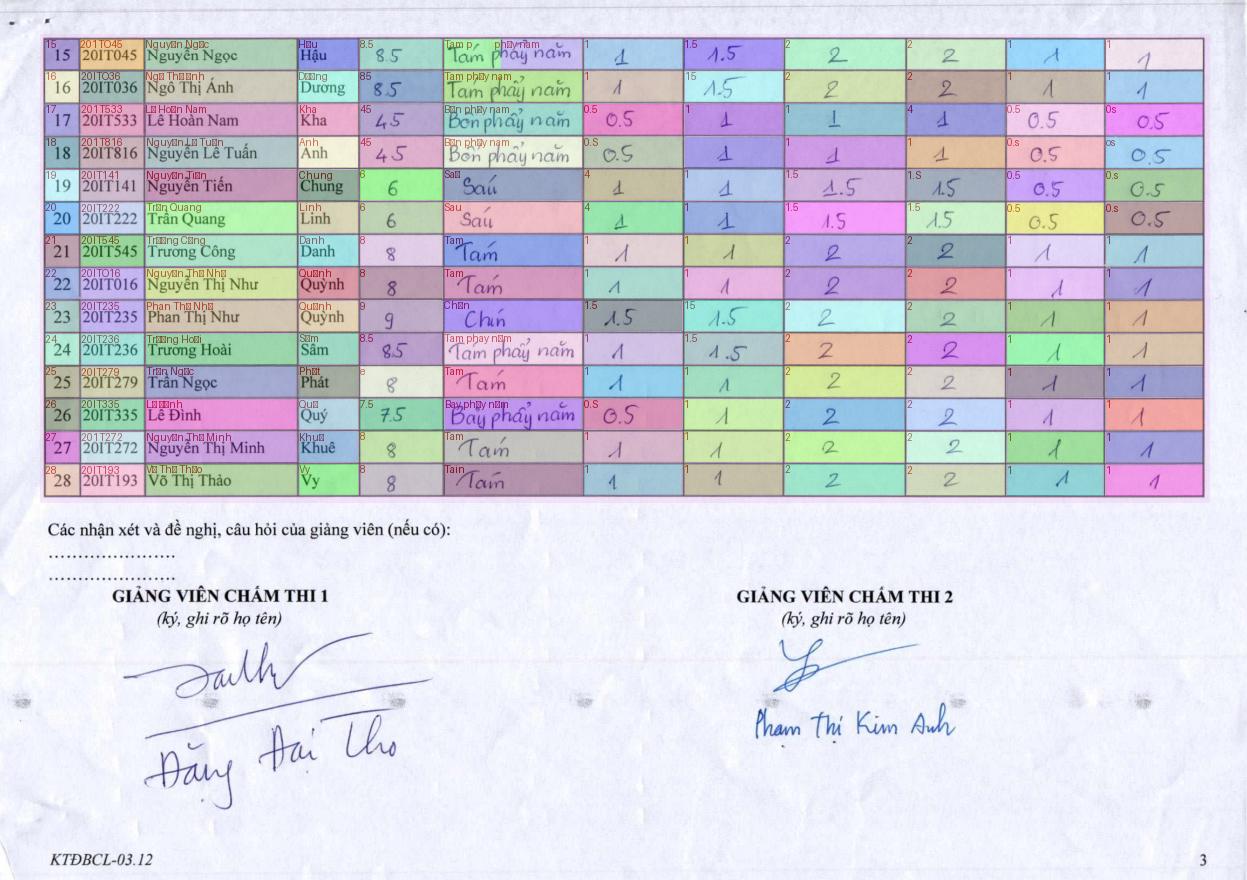 15 20IT045 Nguyễn Ngọc Hậu 8.5 Tám phẩy năm 1 1.5 2 2 1 1
16 20IT036 Ngô Thị Ánh Dương 8.5 Tám phẩy năm 1 1.5 2 2 1 1
17 20IT533 Lê Hoàn Nam Kha 4.5 Bốn phẩy năm 0.5 1 1 1 0.5 0.5
18 20IT816 Nguyễn Lê Tuấn Anh 4.5 Bốn phẩy năm 0.5 1 1 1 0.5 0.5
19 20IT141 Nguyễn Tiến Chung 6 Sáu 1 1 1.5 1.5 0.5 0.5
20 20IT222 Trần Quang Linh 6 Sáu 1 1 1.5 1.5 0.5 0.5
21 20IT545 Trương Công Danh 8 Tám 1 1 2 2 1 1
22 20IT016 Nguyễn Thị Như Quỳnh 8 Tám 1 1 2 2 1 1
23 20IT235 Phan Thị Như Quỳnh 9 Chín 1.5 1.5 2 2 1 1
24 20IT236 Trương Hoài Sâm 8.5 Tám phẩy năm 1 1.5 2 2 1 1
25 20IT279 Trần Ngọc Phát 8 Tám 1 1 2 2 1 1
26 20IT335 Lê Đình Quý 7.5 Bảy phẩy năm 0.5 1 2 2 1 1
27 20IT272 Nguyễn Thị Minh Khuê 8 Tám 1 1 2 2 1 1
28 20IT193 Võ Thị Thảo Vy 8 Tám 1 1 2 2 1 1
Các nhận xét và đề nghị, câu hỏi của giảng viên (nếu có):
......................
.......................
GIẢNG VIÊN CHẤM THI 1 GIẢNG VIÊN CHẤM THI 2
(ký, ghi rõ họ tên) (ký, ghi rõ họ tên)
Đặng Đại Thọ Phạm Thị Kim Anh
KTĐBCL-03.12 3